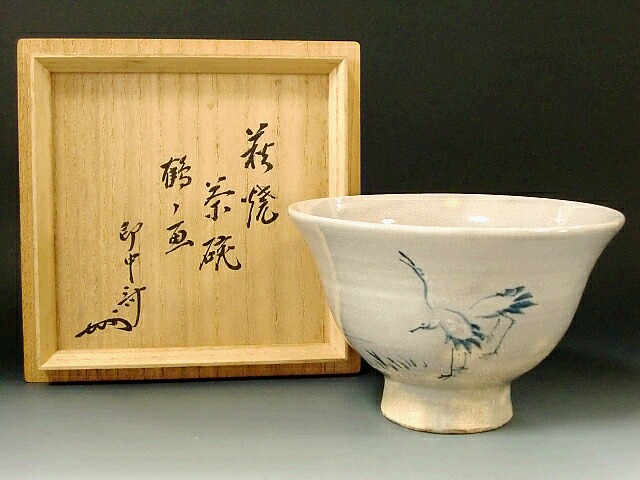 萩焼
茶碗
鶴ノ画
即中斎